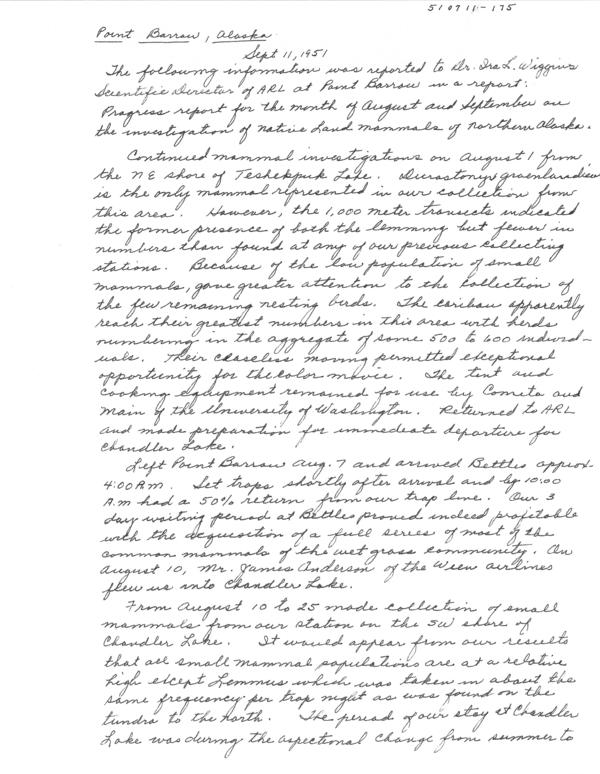 510711-175
Point Barrow, Alaska
Sept 11, 1951
The following information was reported to Dr. Ira L. Wiggins
Scientific Director of ARL at Point Barrow in a report:
Progress report for the month of August and September on
the investigation of native Land mammals of northern Alaska.
Continued mammal investigations on August 1 from
the NE shore of Teshekpuk Lake. Dicrostonyx groenlandicus
is the only mammal represented in our collection from
this area. However, the 1,000 meter transects indicated
the former presence of both the lemming but fewer in
numbers than found at any of our previous collecting
stations. Because of the low population of small
mammals, gave greater attention to the collection of
the few remaining nesting birds. The caribou apparently
reach their greatest numbers in this area with herds
numbering in the aggregate of some 500 to 600 individ-
uals. Their ceaseless moving permitted exceptional
opportunity for the color movie. The tent and
cooking equipment remained for use by Comita and
Main of the University of Washington. Returned to ARL
and made preparation for immediate departure for
Chandler Lake.
Left Point Barrow Aug. 7 and arrived Bettles approx.
4:00 A.M. Set traps shortly after arrival and by 10:00
A.M had a 50% return from our trap line. Our 3
day waiting period at Bettles proved indeed profitable
with the acquisition of a full series of most of the
common mammals of the wet grass community. On
August 10, Mr. James Anderson of the Wien airlines
flew us into Chandler Lake.
From August 10 to 25 made collection of small
mammals from our station on the SW shore of
Chandler Lake. It would appear from our results
that all small mammal populations are at a relative
high except Lemmus which was taken in about the
same frequency per trap night as was found on the
tundra to the north. The period of our stay at Chandler
Lake was during the aspectional change from summer to